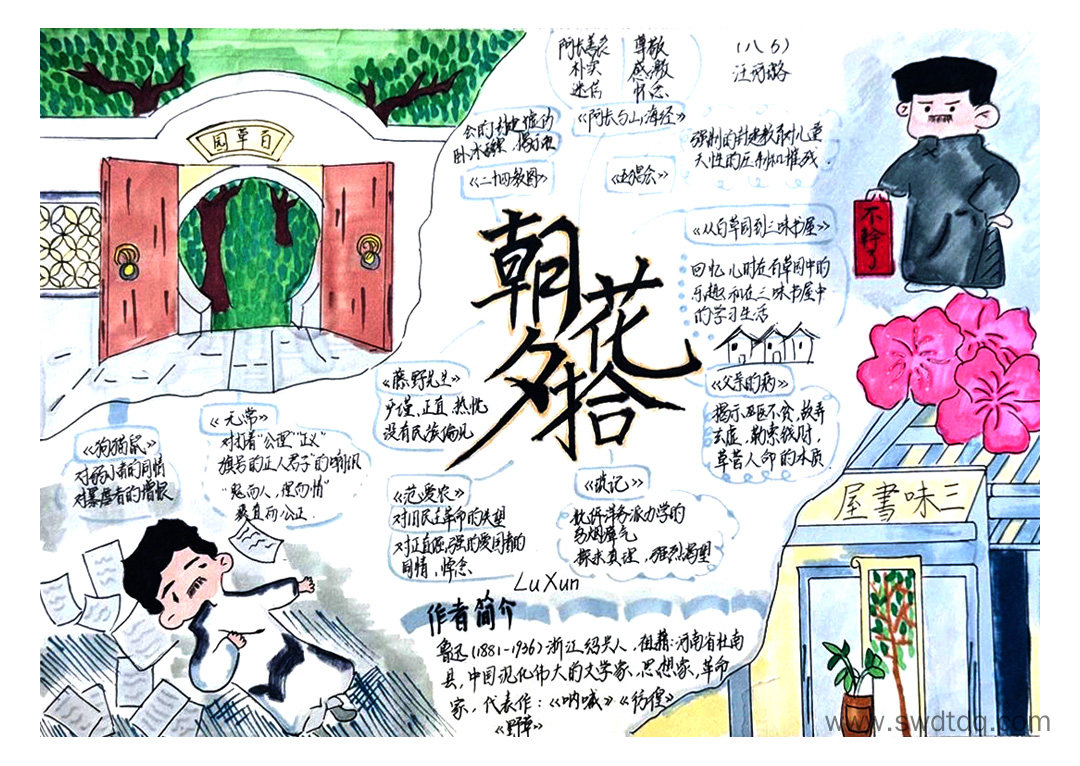 (八6)
阿长善良
朴实
迷信
尊敬
感激
怀念
《阿长与山海经》
《二十四孝图》
《五猖会》
强制的封建教育对儿童
天性的压制和摧残.
百草园
《从百草园到三味书屋》
回忆儿时在百草园中的
乐趣和在三味书屋中
的学习生活
不干了
朝花夕拾
《父亲的病》
揭示巫医不贪,故弄
玄虚,勒索钱财,
草菅人命的本质.
《藤野先生》
严谨,正直,热忱
没有民族偏见
《无常》
对打着"公理""正义"
旗号的正人君子"的嘲讽
"鬼而人,理而情"
最真而公正.
《狗猫鼠》
对弱小者的同情
对暴虐者的憎恨
《范爱农》
对旧民主革命的失望
对正直倔强的爱国者的
同情,悼念
《琐记》
抨击洋务派办学的
乌烟瘴气
探求真理,强烈渴望
三味書屋
LuXun
作者简介
鲁迅(1881-1936)浙江绍兴人,祖籍:河南省
县,中国现代伟大的文学家、思想家,革命
家,代表作:《呐喊》《彷徨》
《野草》
www.swdtdq.com